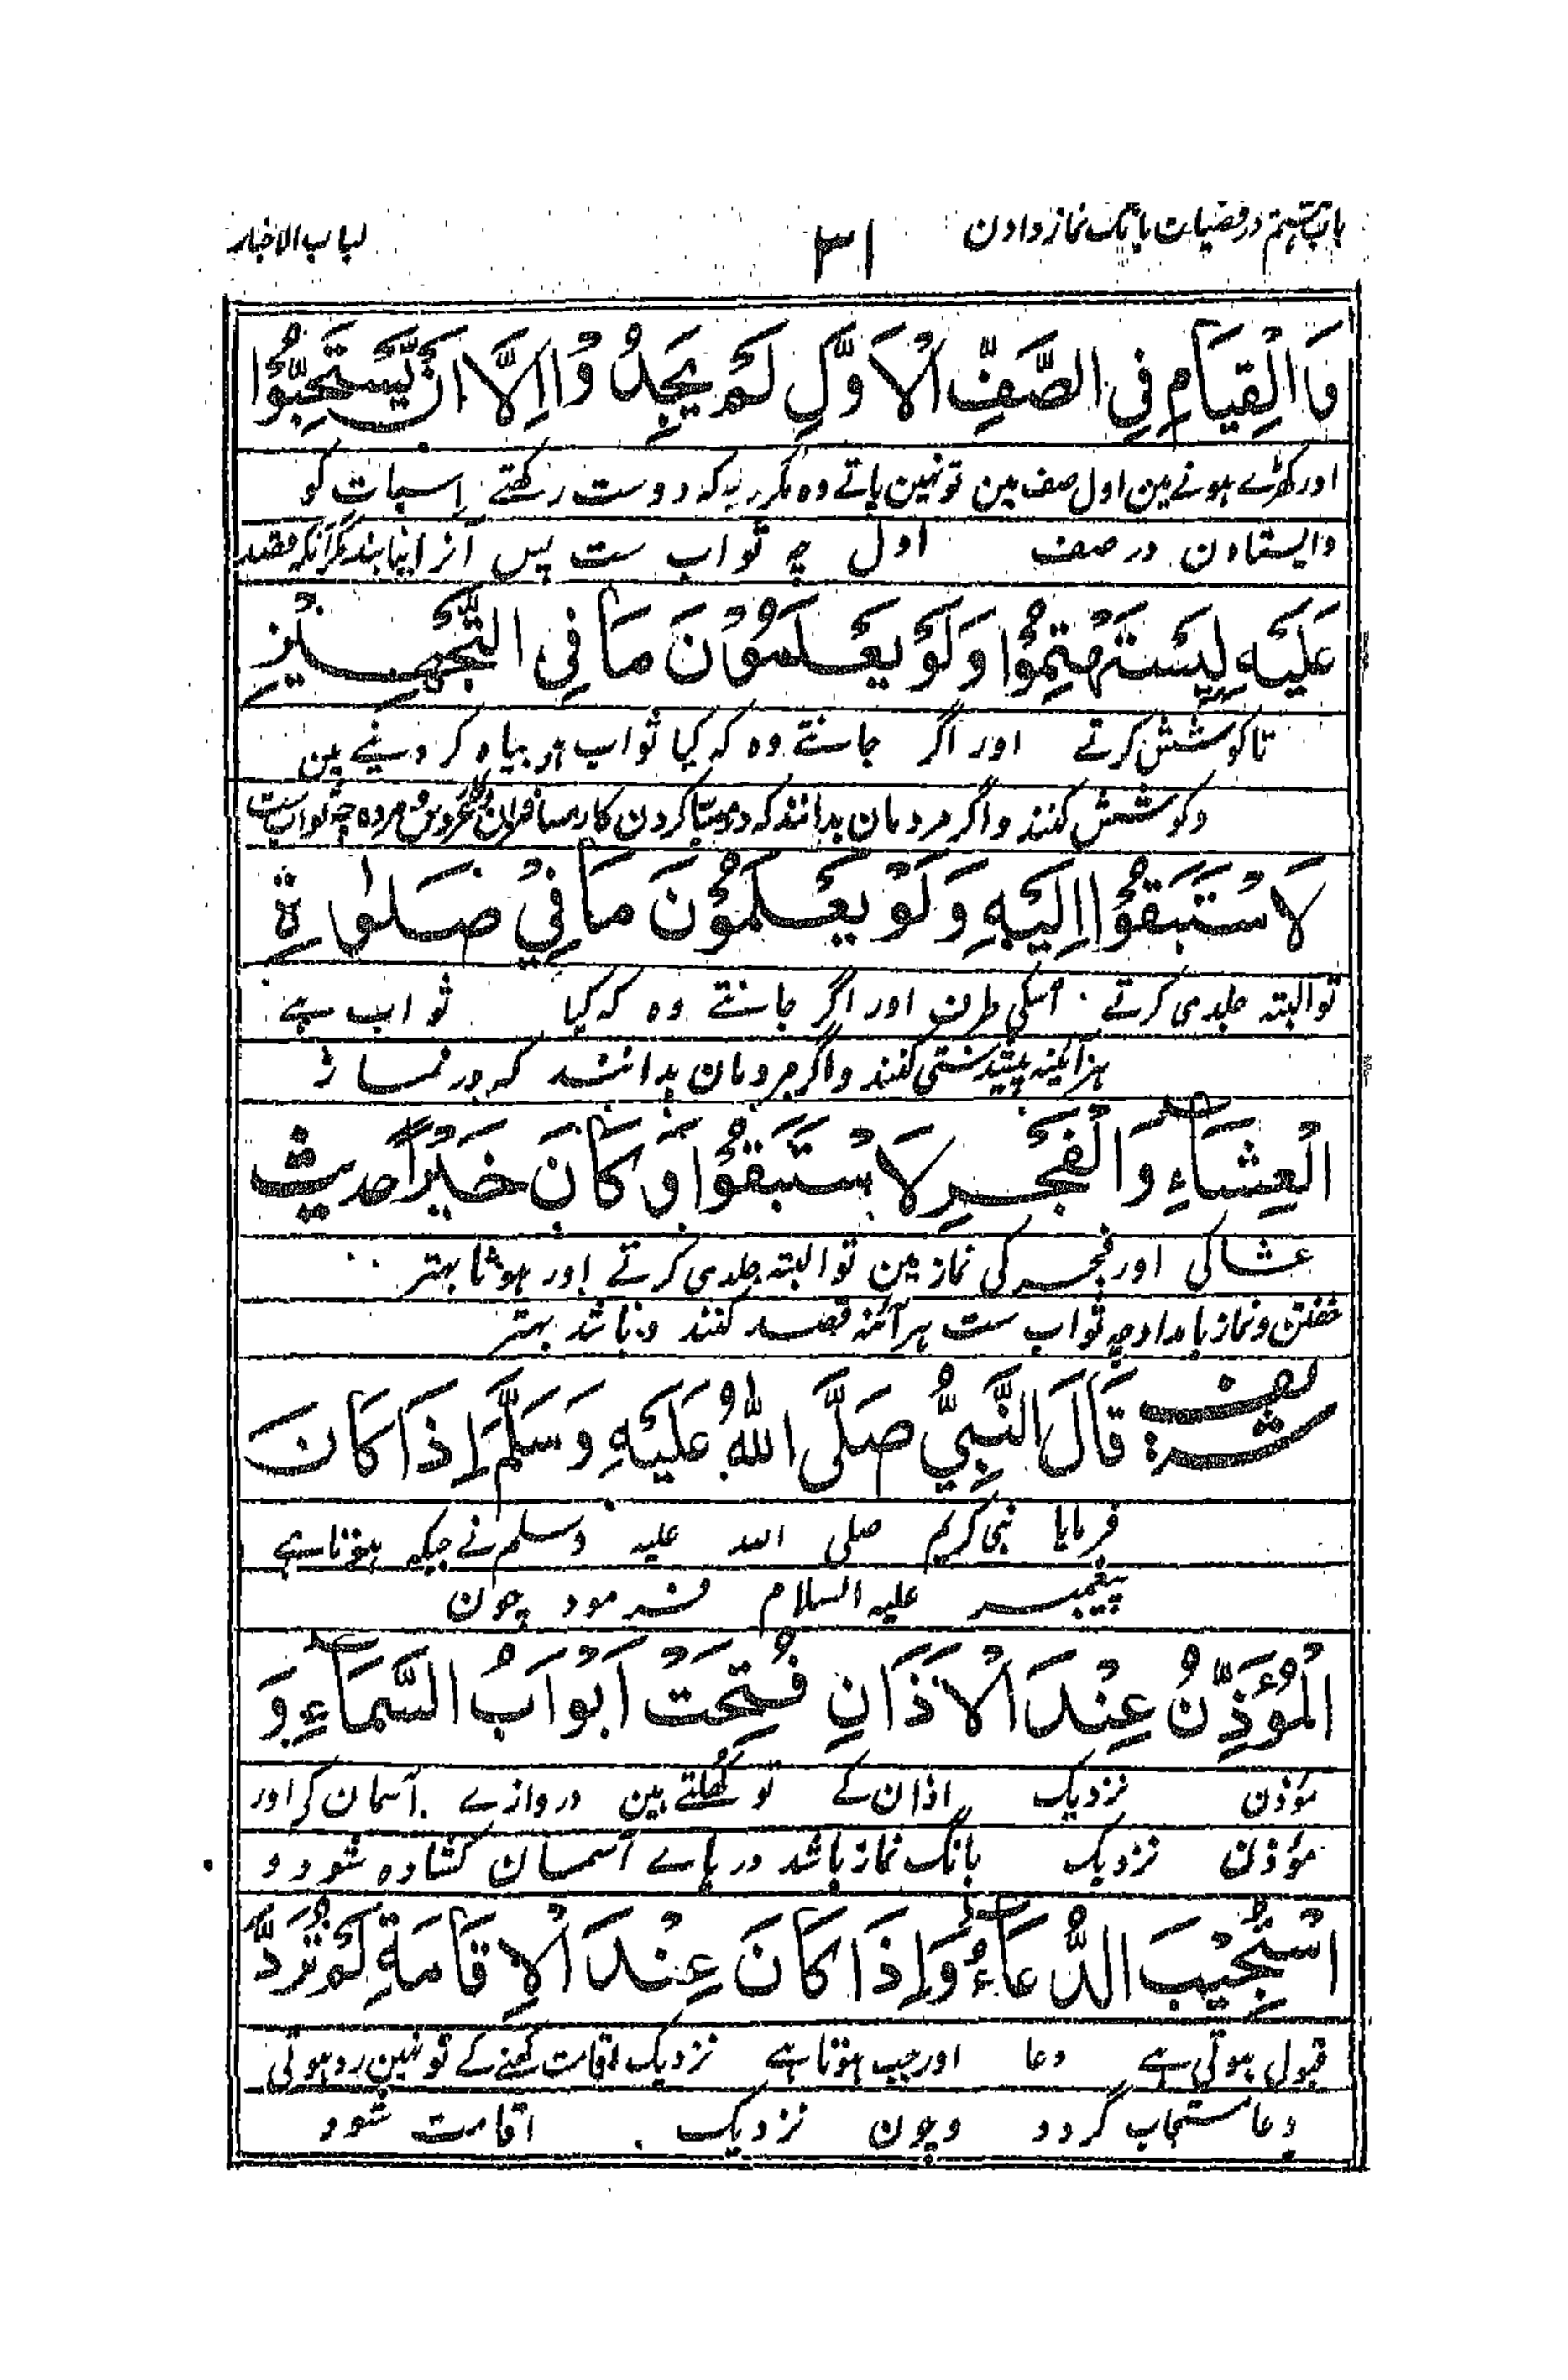 باب ہشتم در فضیلت بانگ نماز دادن ۳۱ لباب الاخبار
وَالْقِيَامِ فِي الصَّفِّ الْاَوَّلِ لَمْ يَجِدُوْا اِلَّا اَنْ يَّسْتَحِبُّوْا
اور کھڑے ہونے مین اول صف مین تو نہین پاتے وہ مگر یہ کہ دوست رکھتے اسبات کو
وایستادن در صف اول چہ ثواب ست پس آنرا نیابند مگر آنکہ قصد
عَلَيْهِ لِيَسْتَهْتِمُوْا وَلَوْ يَعْلَمُوْنَ مَا فِي التَّجْهِيْزِ
تا کوشش کرتے اور اگر جانتے وہ کہ کیا ثواب ہے بیاہ کر دینے مین
وکوشش کنند واگر مردمان بدانند کہ در مہیا کردن کار مسافران وعروس ومردہ چہ ثواب ست
لَاسْتَبَقُوْا اِلَيْهِ وَلَوْ يَعْلَمُوْنَ مَا فِيْ صَلٰوةِ
تو البتہ جلدی کرتے اسکی طرف اور اگر جانتے وہ کہ کیا ثواب ہے
ہرآئینہ پیشدستی کنند واگر مردمان بدانند کہ در نماز
الْعِشَاءِ وَالْفَجْرِ لَاسْتَبَقُوْا وَكَانَ خَيْرًا حدیث
عشا کی اور فجر کی نماز مین تو البتہ جلدی کرتے اور ہوتا بہتر
خفتن ونماز بامداد چہ ثواب ست ہرآئنہ قصد کنند وباشد بہتر
شریف قَالَ النَّبِيُّ صَلَّى اللّٰهُ عَلَيْهِ وَسَلَّمَ اِذَا كَانَ
فرمایا نبی کریم صلی اللہ علیہ وسلم نے جبکہ ہوتا ہے
پیغمبر علیہ السلام فرمود چون
الْمُؤَذِّنُ عِنْدَ الْاَذَانِ فُتِحَتْ اَبْوَابُ السَّمَاءِ وَ
مؤذن نزدیک اذان کے تو کھلتے ہین دروازے آسمان کے اور
مؤذن نزدیک بانگ نماز باشد درہاے آسمان کشادہ شود و
اسْتُجِيْبَ الدُّعَاءُ وَاِذَا كَانَ عِنْدَ الْاِقَامَةِ لَمْ تُرَدَّ
قبول ہوتی ہے دعا اور جب ہوتا ہے نزدیک اقامت کہنے کے تو نہین رد ہوتی
دعا مستجاب گردد وچون نزدیک اقامت شود